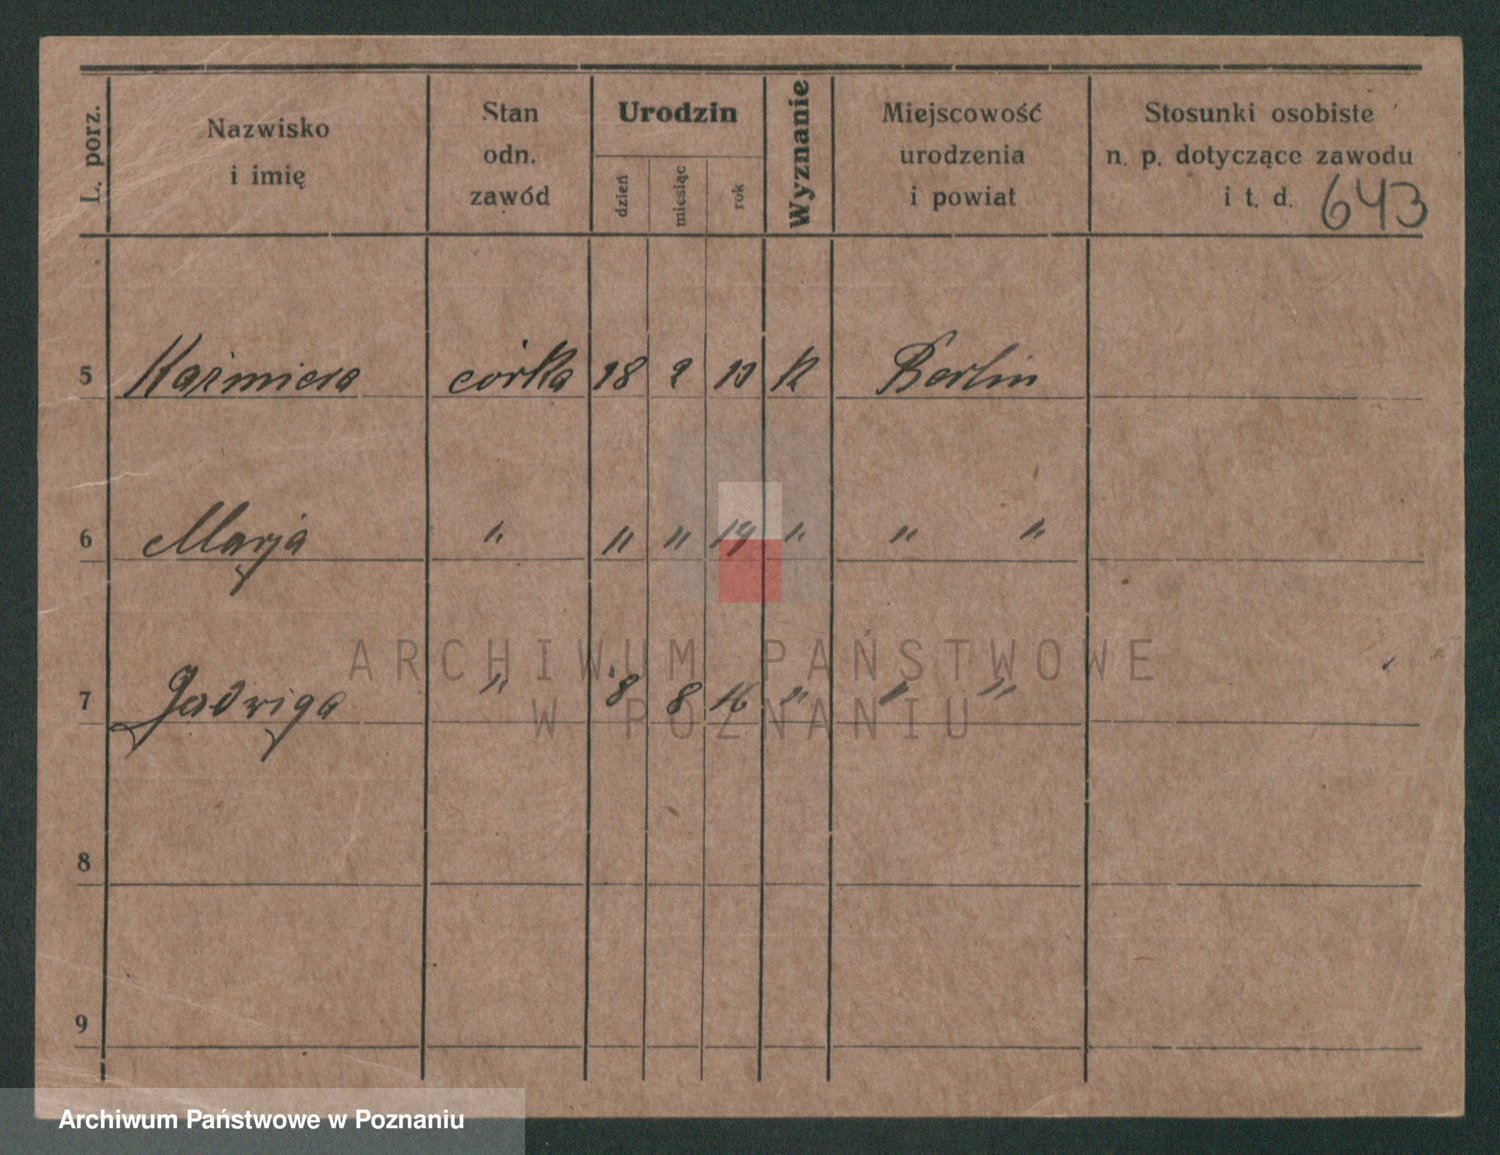 L. porz.
Nazwisko
i imię
Stan
odn.
zawód
Urodzin
dzień
miesiąc
rok
Wyznanie
Miejscowość
urodzenia
i powiat
Stosunki osobiste
n. p. dotyczące zawodu
i t. d. 643
5 Kaźmiera córka 18 2 K Berlin
6 Marja " " " " " "
7 Jadwiga " 8 8 16 " " "
8
9
ARCHIWUM PAŃSTWOWE
W POZNANIU
Archiwum Państwowe w Poznaniu